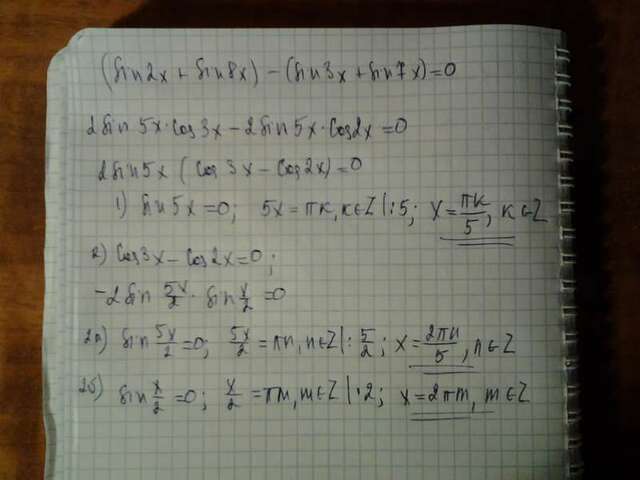 (sin2x + sin8x) − (sin3x + sin7x) = 0
2sin5x·cos3x − 2sin5x·cos2x = 0
2sin5x (cos3x − cos2x) = 0
1) sin5x = 0; 5x = πk, k∈Z |:5; x = πk/5, k∈Z
2) cos3x − cos2x = 0;
−2sin 5x/2 · sin x/2 = 0
2а) sin 5x/2 = 0; 5x/2 = πn, n∈Z |: 5/2; x = 2πn/5, n∈Z
2б) sin x/2 = 0; x/2 = πm, m∈Z |·2; x = 2πm, m∈Z